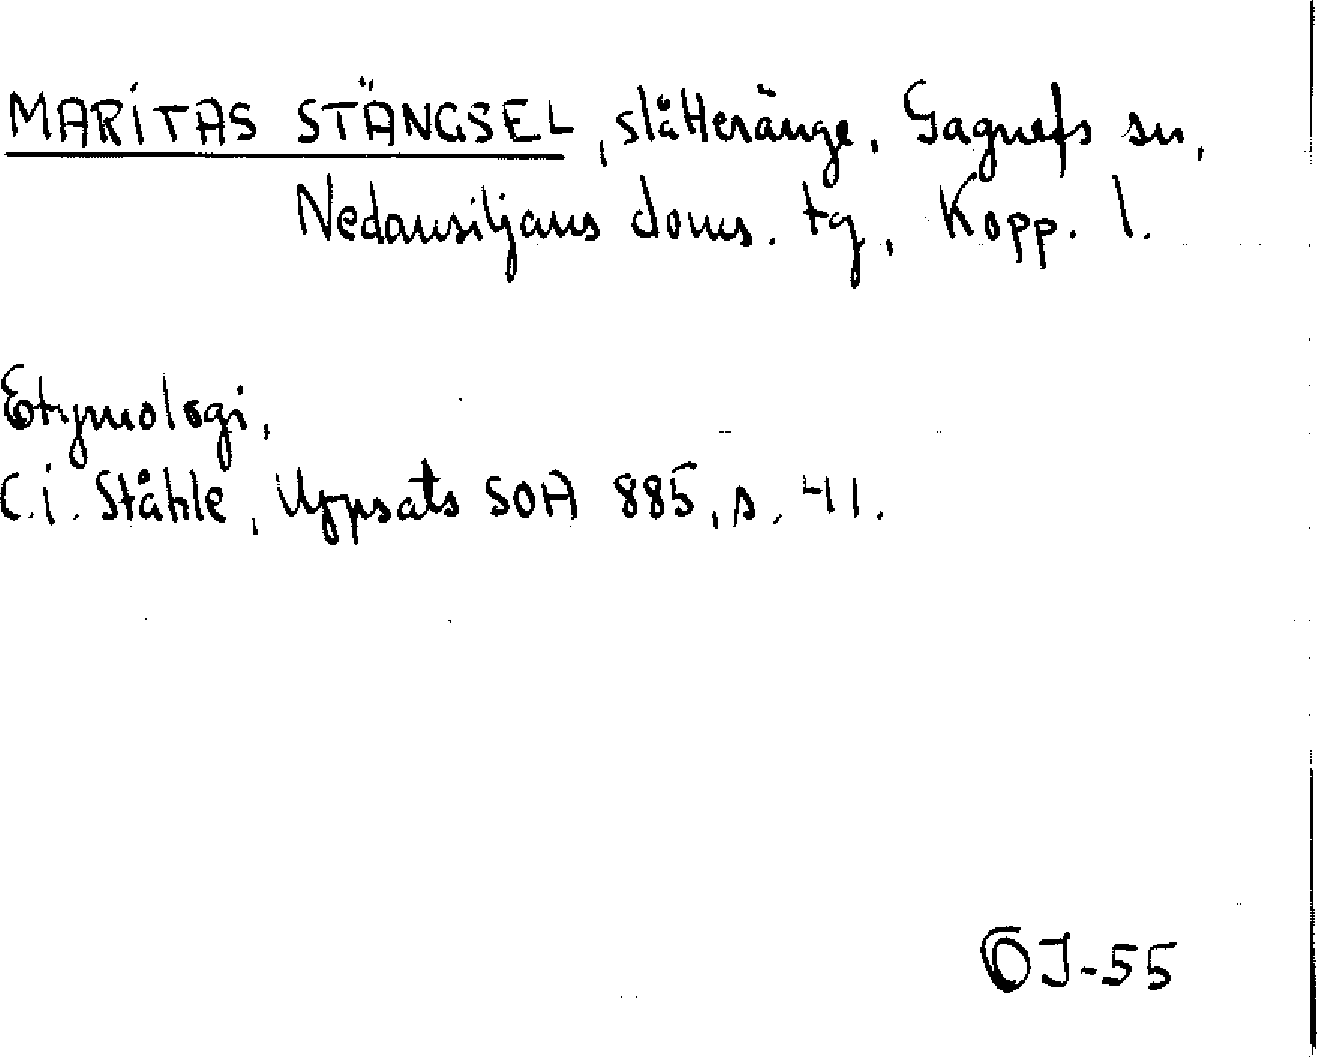 MARITAS STÄNGSEL, slåtteränge, Gagnefs sn,
Nedansiljans doms. tg, Kopp. l.
Etymologi,
C.I. Ståhle, Uppsats SOA 885, s. 41.
OJ-55